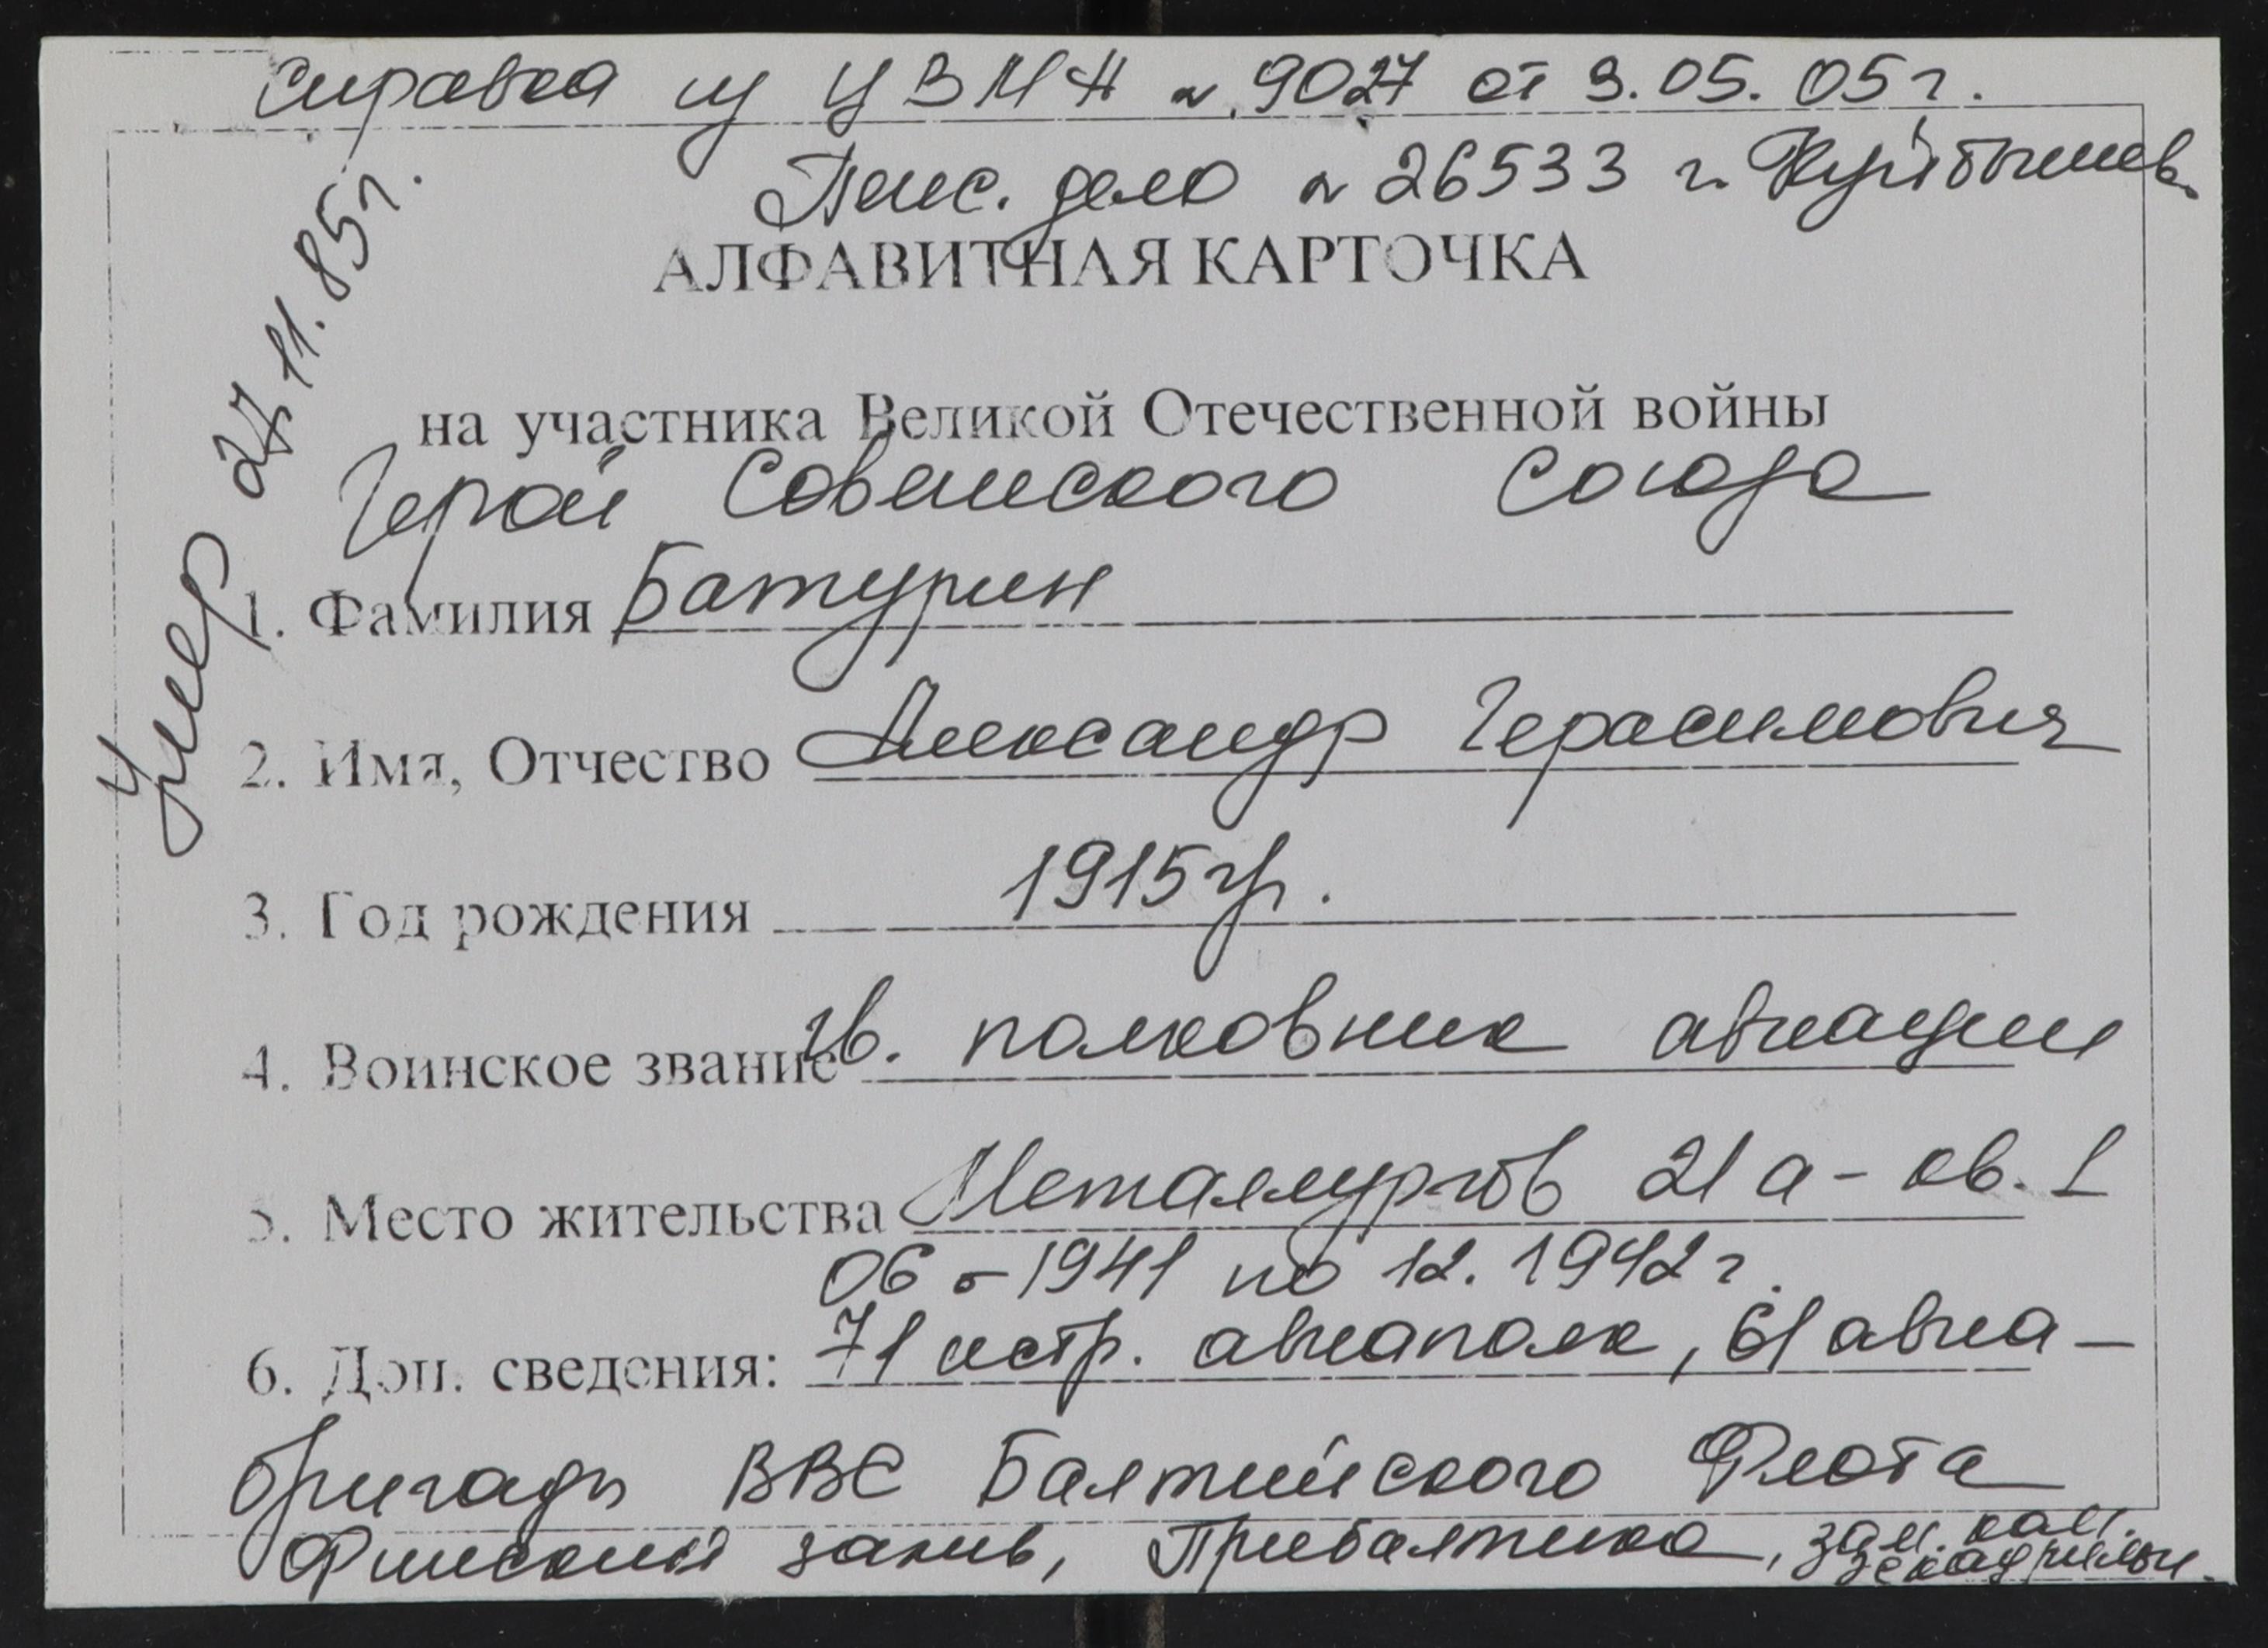 Справка из ЦВМА № 9027 от 9.05.05г.
Пенс. дело № 26533 г. Куйбышев.
АЛФАВИТНАЯ КАРТОЧКА
на участника Великой Отечественной войны
Герой Советского Союза
Умер 27.11.85г.
1. Фамилия Батурин
2. Имя, Отчество Александр Герасимович
3. Год рождения 1915 гр.
4. Воинское звание гв. полковник авиации
5. Место жительства Металлургов 21а - кв. 1
06 - 1941 по 12. 1942 г.
6. Доп. сведения: 71 истр. авиаполк, 61 авиа-
бригады ВВС Балтийского Флота
Финский залив, Прибалтика, зам. ком.
эскадрильи.